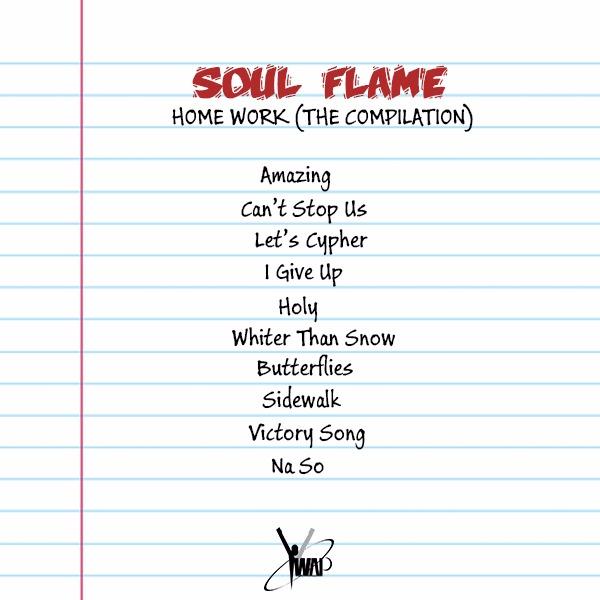 SOUL FLAME
HOME WORK (THE COMPILATION)
Amazing
Can't Stop Us
Let's Cypher
I Give Up
Holy
Whiter Than Snow
Butterflies
Sidewalk
Victory Song
Na So